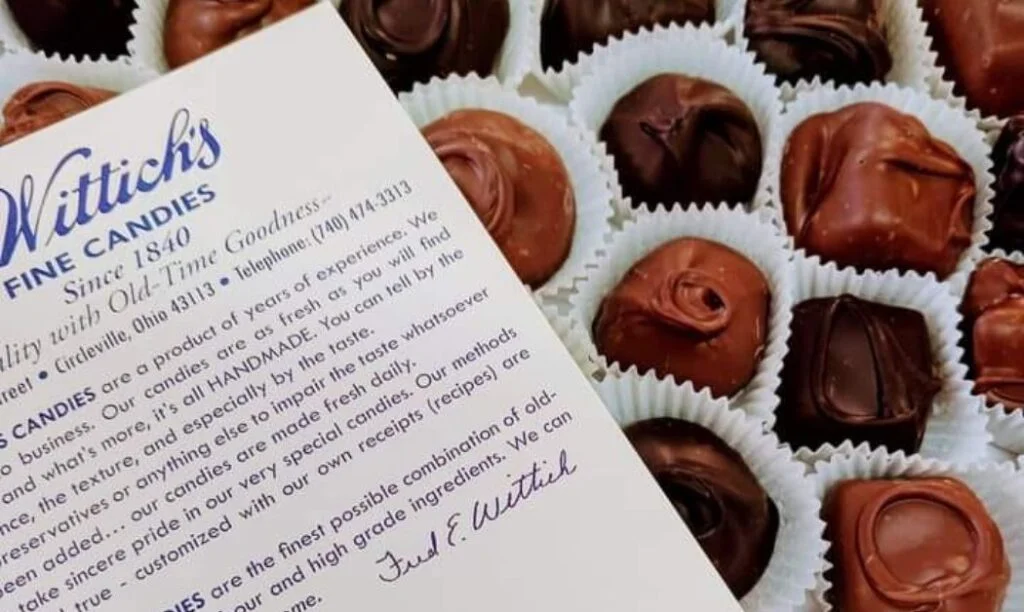 Wittich's
FINE CANDIES
Since 1840
ality with Old-Time Goodness--
reet • Circleville, Ohio 43113 • Telephone: (740) 474-3313
S CANDIES are a product of years of experience. We
o business. Our candies are as fresh as you will find
and what's more, it's all HANDMADE. You can tell by the
nce, the texture, and especially by the taste.
reservatives or anything else to impair the taste whatsoever
een added... our candies are made fresh daily.
take sincere pride in our very special candies. Our methods
true - customized with our own receipts (recipes) are
DIES are the finest possible combination of old-
our and high grade ingredients. We can
ome.
Fred E. Wittich